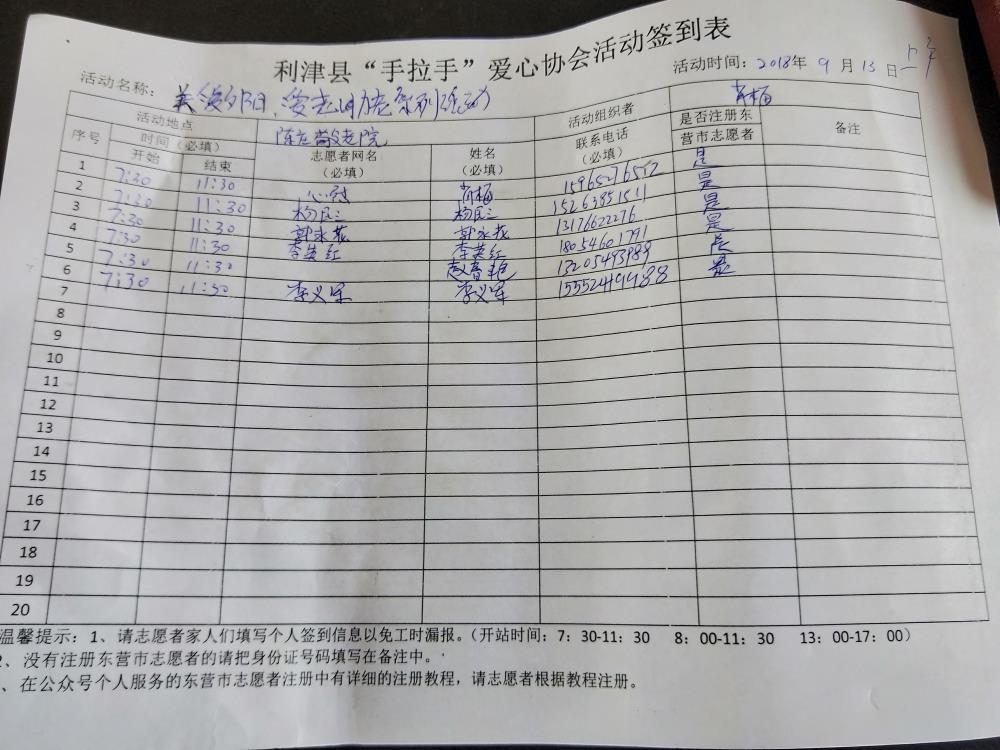 利津县“手拉手”爱心协会活动签到表
活动名称：
活动时间：2018年9月13日上午
活动地点 陈庄敬老院 活动组织者 肖梅
序号 时间（必填） 志愿者网名（必填） 姓名（必填） 联系电话（必填） 是否注册东营市志愿者 备注
开始 结束
1 7:30 11:30 心慰 肖梅 是
2 7:30 11:30 杨民三 杨民三 15263851511 是
3 7:30 11:30 郭永花 郭永花 13176622276 是
4 7:30 11:30 李英红 李英红 18054601791 是
5 7:30 11:30 13205493989 是
6 7:30 11:30 李义军 李义军 是
7
8
9
10
11
12
13
14
15
16
17
18
19
20
温馨提示：1、请志愿者家人们填写个人签到信息以免工时漏报。（开站时间：7：30-11：30 8：00-11：30 13：00-17：00）
2、没有注册东营市志愿者的请把身份证号码填写在备注中。
、在公众号个人服务的东营市志愿者注册中有详细的注册教程，请志愿者根据教程注册。